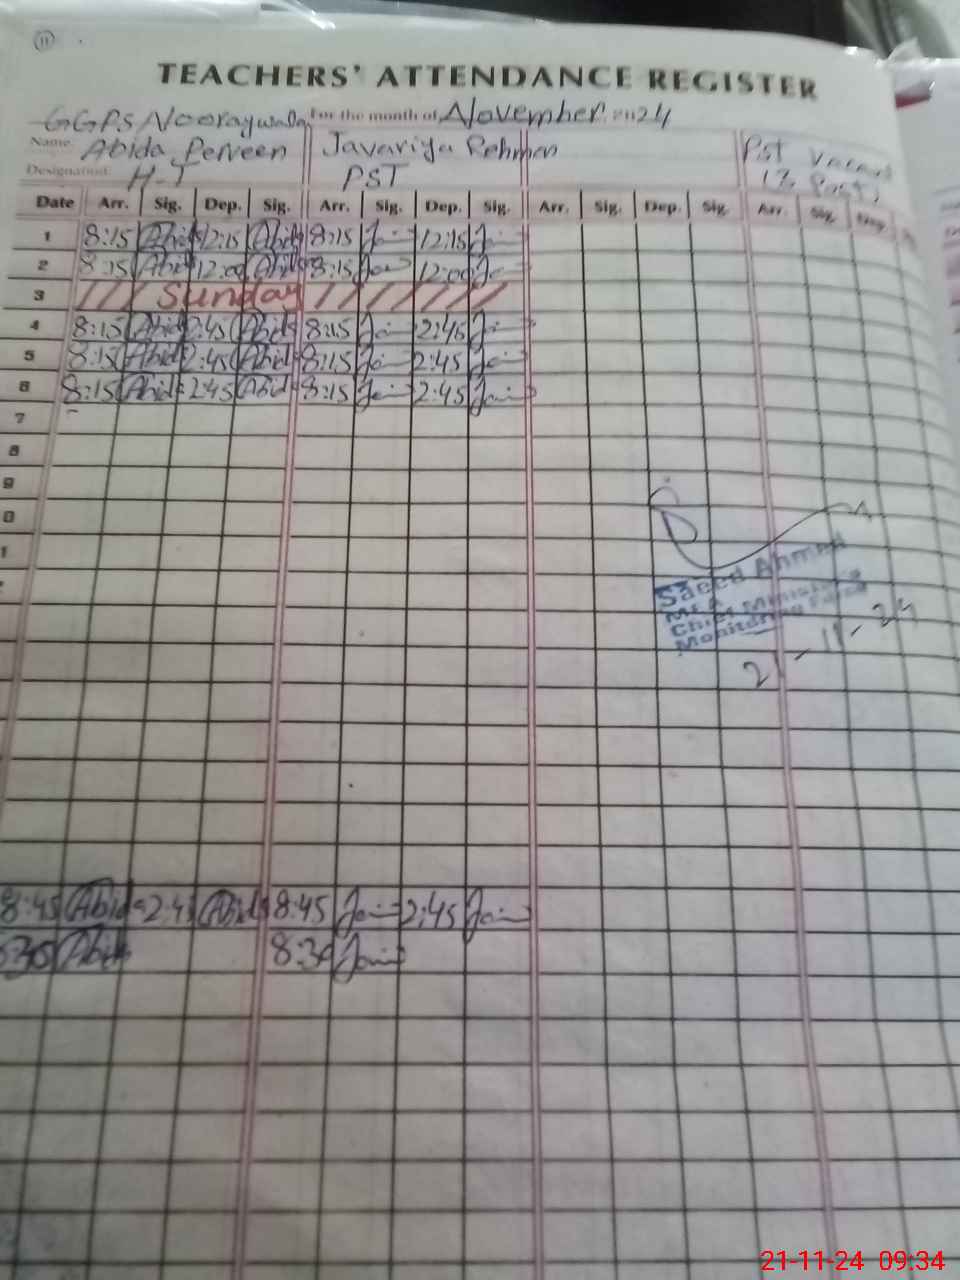 11
TEACHERS' ATTENDANCE REGISTER
GGPS Nooraywala For the month of November 2024
Name Abida Perveen Javariya Rehman PST
Designation H-T PST
Date Arr. Sig. Dep. Sig. Arr. Sig. Dep. Sig. Arr. Sig. Dep. Sig. Arr. Sig. Dep.
1 8:15 Abida 12:15 Abida 8:15 12:15
2 8:15 Abida 12:00 Abida 8:15 12:00
3 Sunday
4 8:15 Abida 2:45 Abida 8:15 2:45
5 8:15 Abida 2:45 Abida 8:15 2:45
6 8:15 Abida 2:45 Abida 8:15 2:45
7
8
9
0
1
Saeed Ahmed
MEA
Chief Minister's
Monitoring Force
21-11-24
8:45 Abida 2:45 Abida 8:45 2:45
8:30 Abida 8:30
21-11-24 09:34